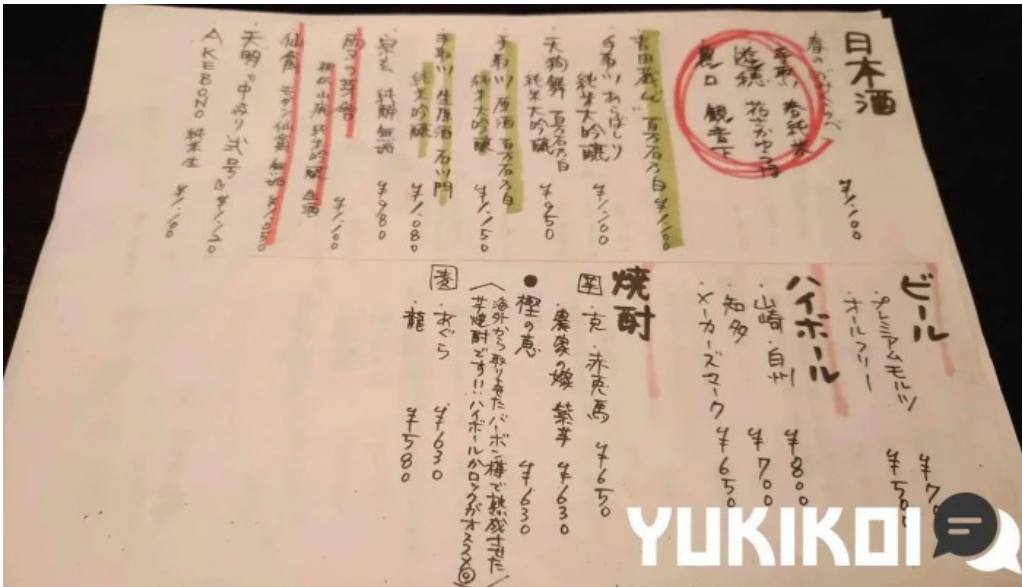 日本酒
春の
手取川 春純米
農口 観音下
¥1,100
吉田蔵 百万石乃白 ¥1,100
手取川 あらばしり
純米大吟醸 ¥1,100
天狗舞 百万石乃白
純米大吟醸 ¥950
手取川 原酒 百万石乃白
純米大吟醸 ¥1,150
手取川 生原酒 石川門
純米吟醸 ¥1,080
純 無濾 ¥980
純米吟醸 生酒 ¥1,100
仙禽 モダン仙禽 無垢 ¥1,050
天明 中取り 弐号 ¥1,120
AKEBONO 純米生 ¥1,100
ビール
・プレミアムモルツ ¥70
・オールフリー ¥500
ハイボール
・山崎・白州 ¥800
・知多 ¥700
・メーカーズマーク ¥650
焼酎
芋 ・克・赤兎馬 ¥650
・農家の嫁 紫芋 ¥630
● 樫の恵 ¥630
海外から取りよせたバーボン樽で熟成させた
芋焼酎です!!ハイボールかロックがオススメ◎
麦 ・おぐら ¥630
・龍 ¥580
YUKIKOI